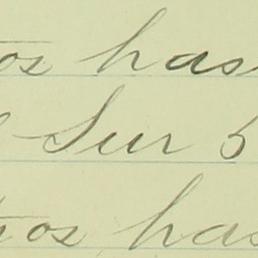 os has
Sur 5
tros has